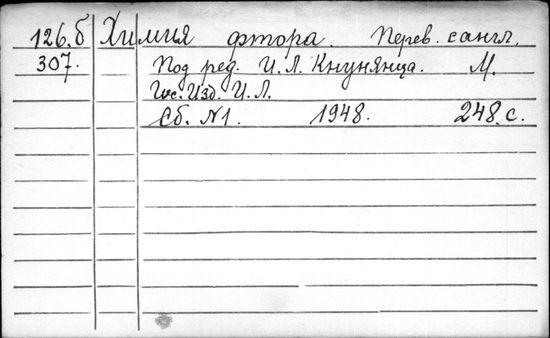 126.б Химия фтора. Перев. с англ.
307. Под ред. И.Л. Кнунянца. М.
Гос. Изд. И.Л.
Сб. N1. 1948. 248 с.